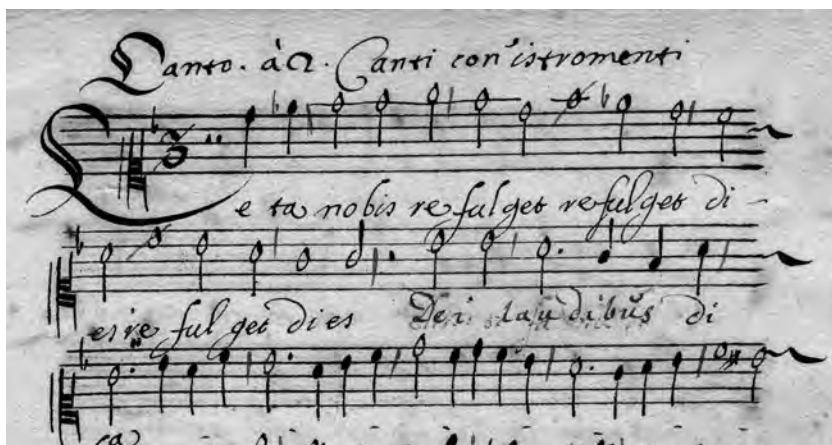 Canto. à 2. Canti con istromenti
Le ta nobis refulget refulget di-
es re ful get dies Dei lau dibus di
ca